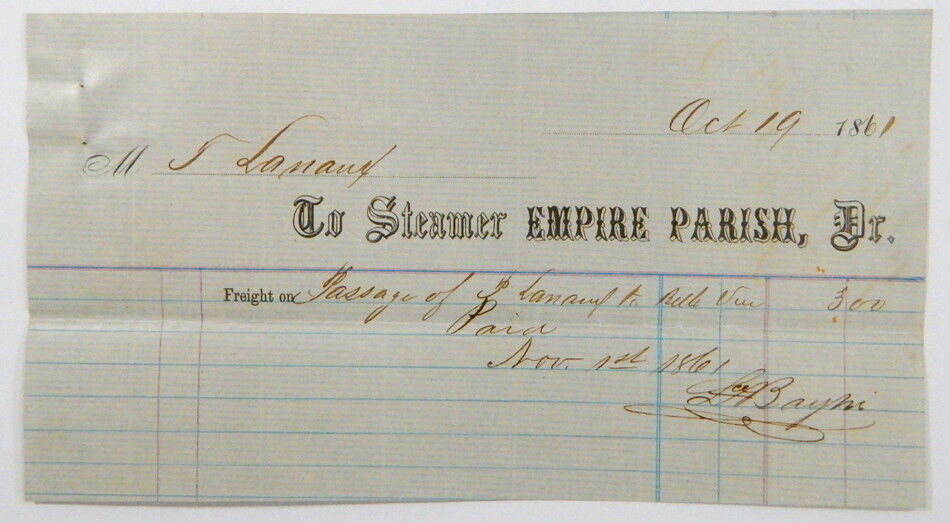 Oct 19 1861
M T Lanaux
To Steamer EMPIRE PARISH, Dr.
Freight on Passage of Lanaux to Belle Vue 3 00
Paid
Nov. 1st 1861